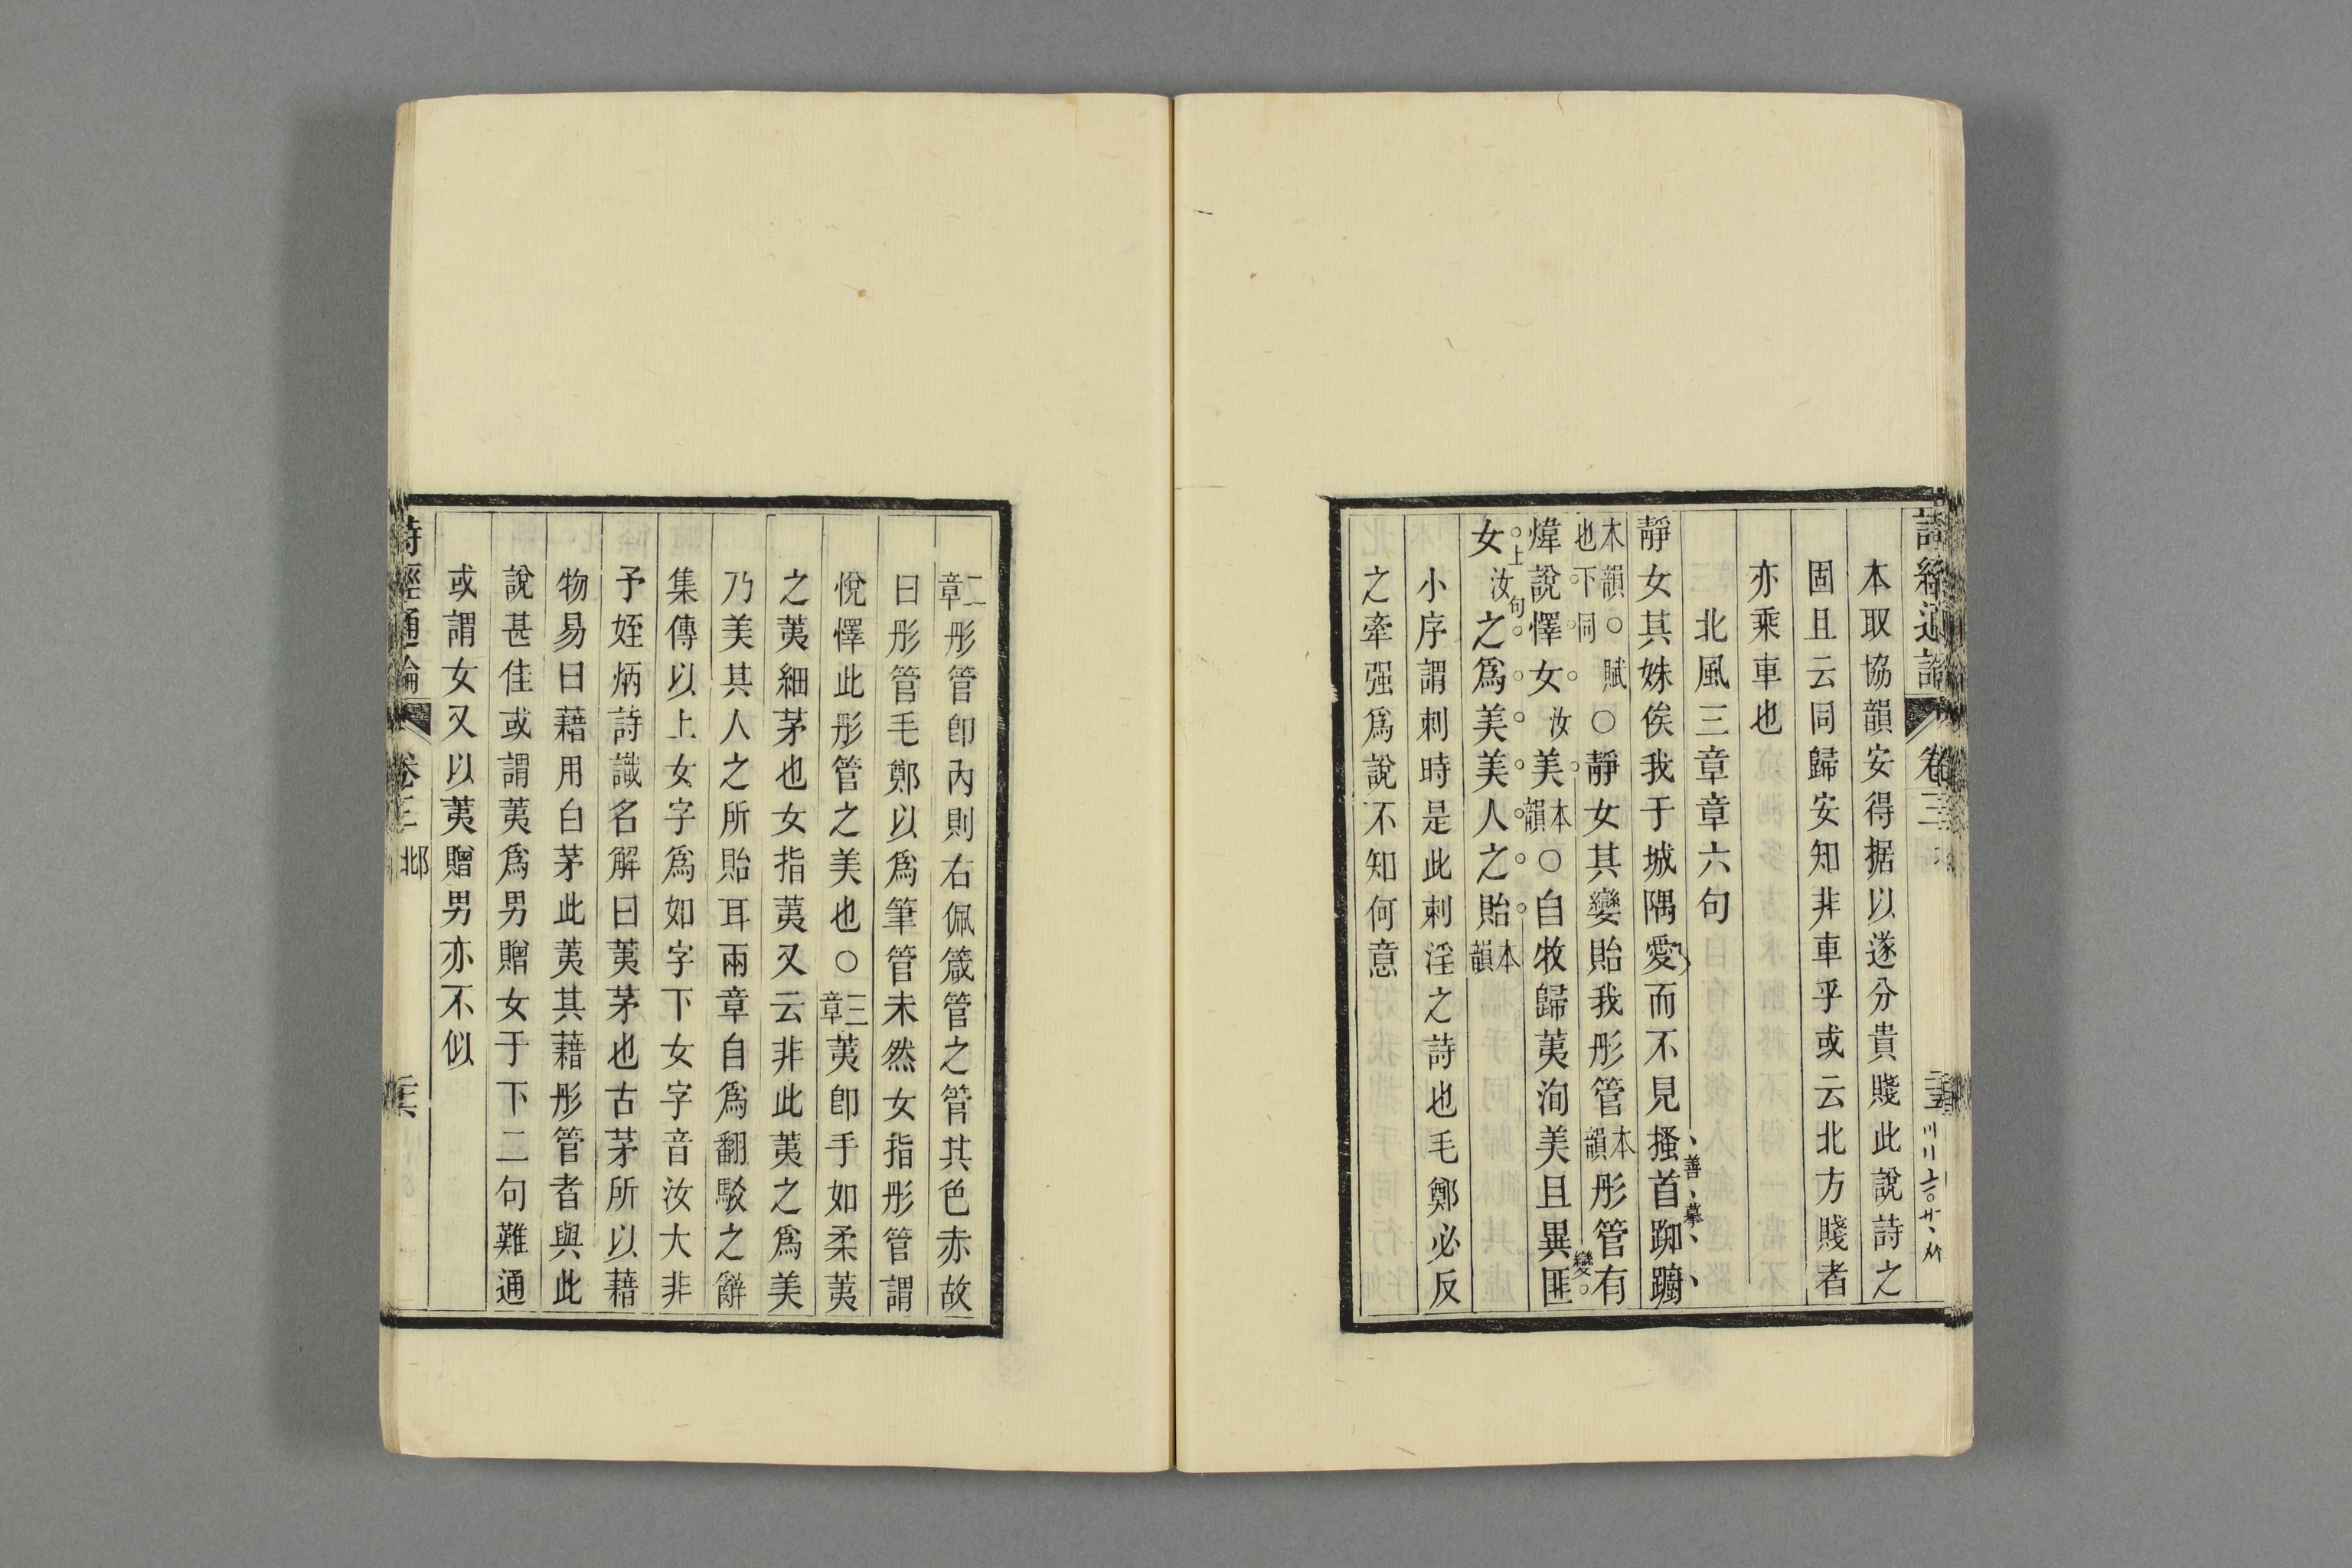 本取協韻安得据以遂分貴賤此說詩之
固且云同歸安知非車乎或云北方賤者
亦乘車也
北風三章章六句
靜女其姝俟我于城隅愛而不見搔首踟躕
善摹
本韻
也下同
○賦
○靜女其孌貽我彤管本韻彤管有
變
煒說懌女汝美本韻○自牧歸荑洵美且異匪
上句
女汝之爲美美人之貽本韻
小序謂刺時是此刺淫之詩也毛鄭必反
之牽强爲說不知何意
二章彤管卽內則右佩箴管之管其色赤故
曰彤管毛鄭以爲筆管未然女指彤管謂
悅懌此彤管之美也○三章荑卽手如柔荑
之荑細茅也女指荑又云非此荑之爲美
乃美其人之所貽耳兩章自爲翻駁之辭
集傳以上女字爲如字下女字音汝大非
予姪炳詩識名解曰荑茅也古茅所以藉
物易曰藉用白茅此荑其藉彤管者與此
說甚佳或謂荑爲男贈女于下二句難通
或謂女又以荑贈男亦不似
詩經通論 卷三 邶